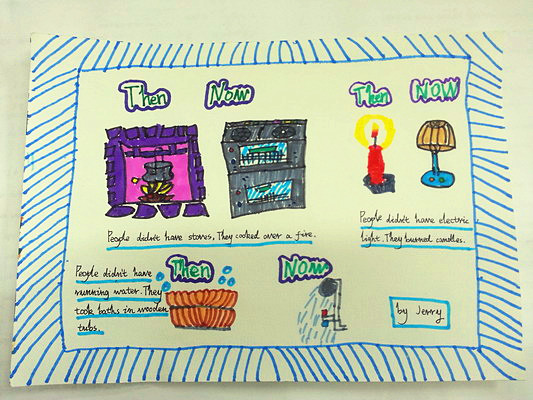 Then Now
Then NOW
People didn't have stoves. They cooked over a fire.
People didn't have electric
light. They burned candles.
Then Now
People didn't have
running water. They
took baths in wooden
tubs.
by Jerry